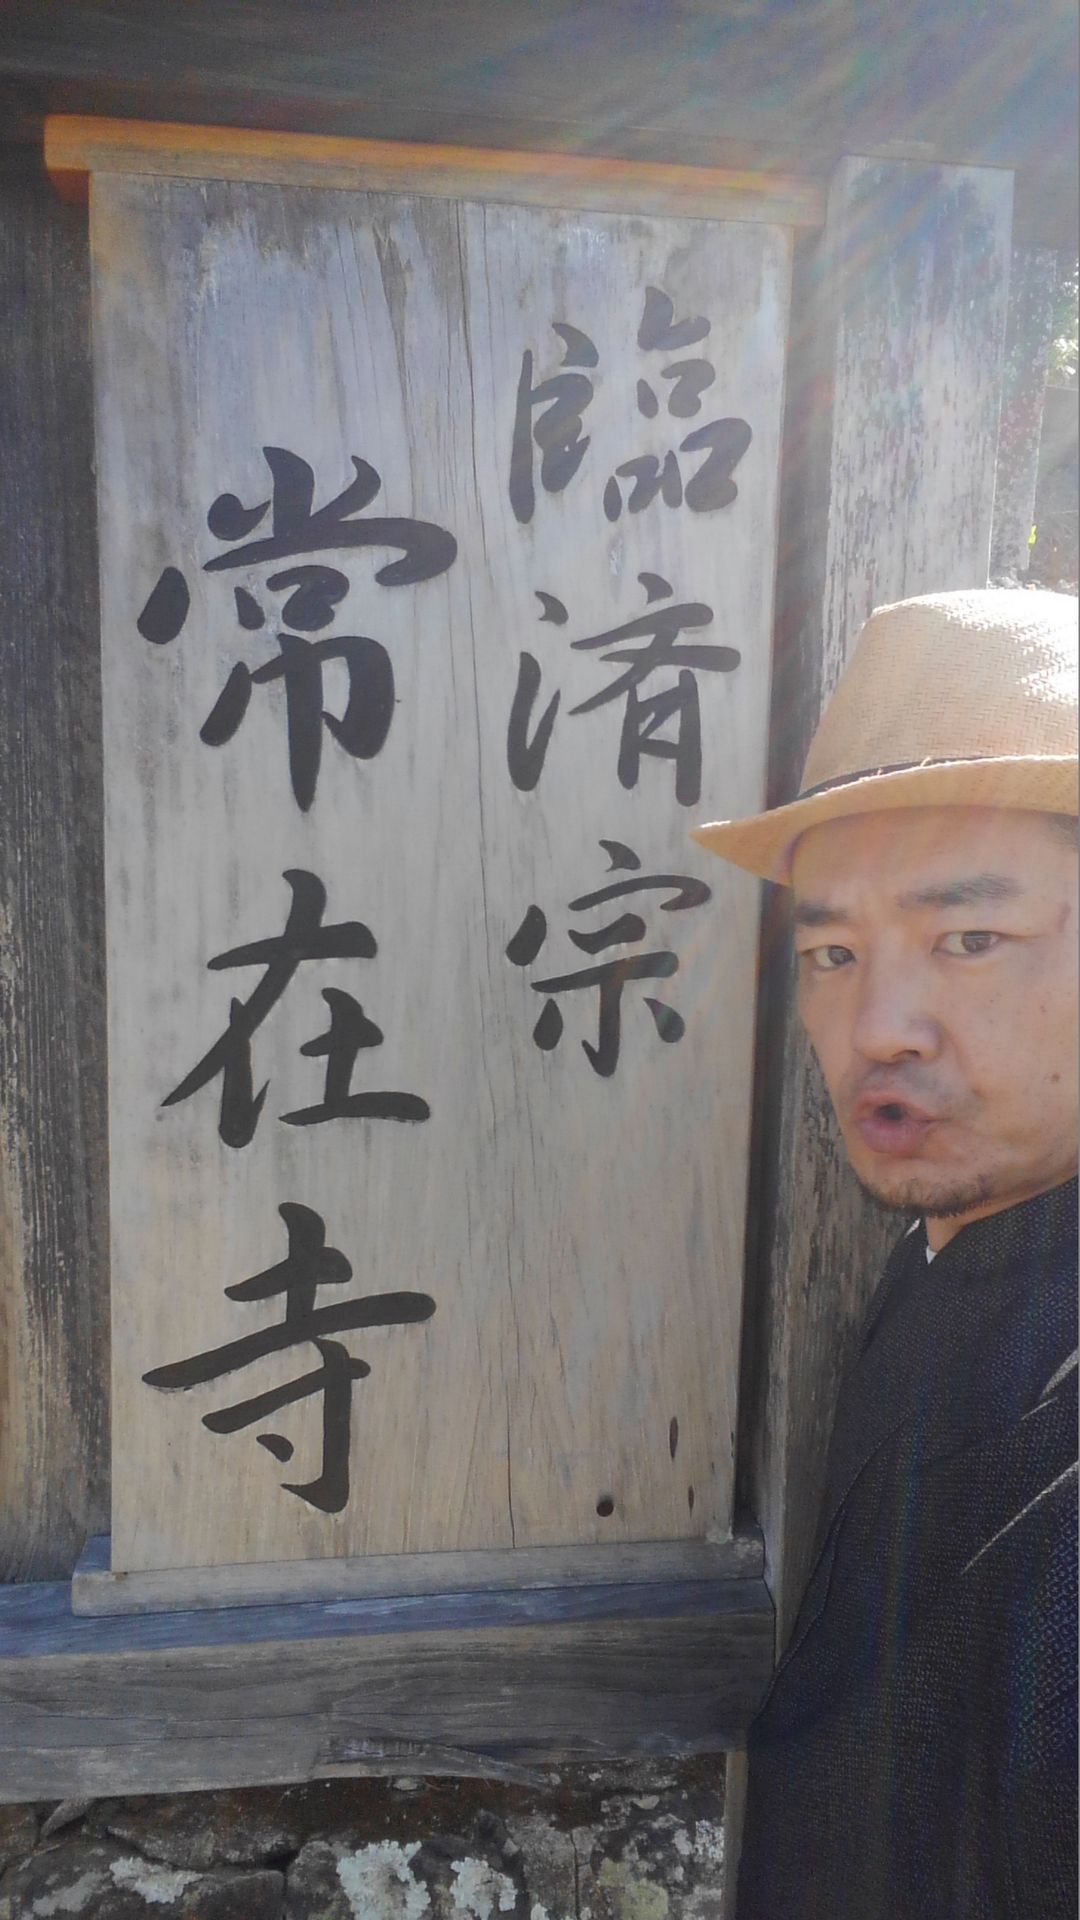 臨済宗
常在寺